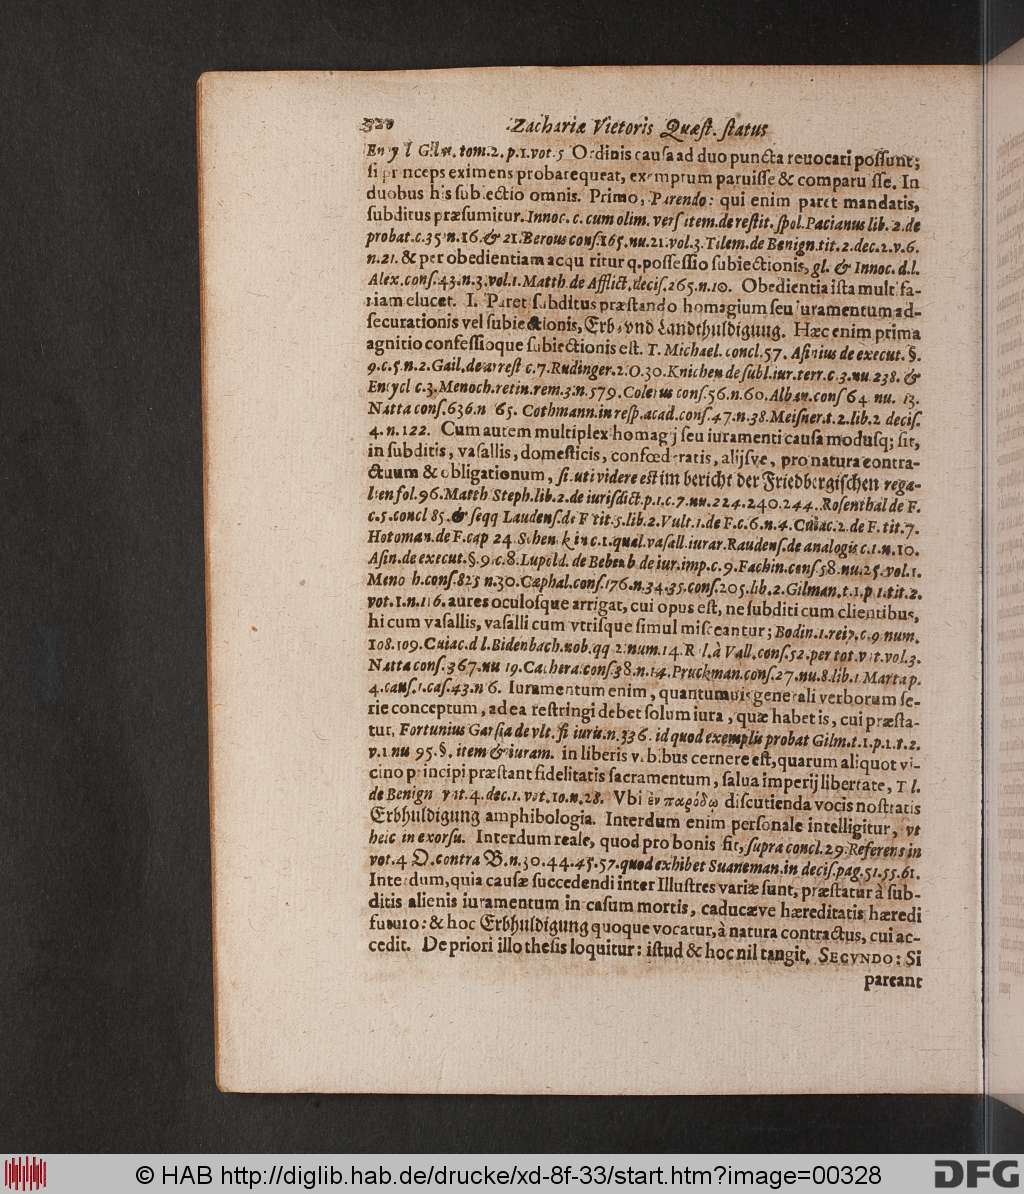 320 Zachariæ Vietoris Quæst. status
Encycl Gilm. tom.2. p.1.vot.5 Ordinis causa ad duo puncta reuocari possunt;
si princeps eximens probare queat, exemptum paruisse & comparuisse. In
duobus his subiectio omnis. Primo, Parendo: qui enim paret mandatis,
subditus præsumitur. Innoc. c. cum olim. vers item. de restit. spol. Pacianus lib. 2. de
probat. c. 35 n. 16. & 21. Berous cons. 165. nu. 21. vol. 3. Tilem. de Benign. tit. 2. dec. 2. v. 6.
n. 21. & per obedientiam acquiritur q. possessio subiectionis, gl. & Innoc. d. l.
Alex. cons. 43. n. 3. vol. 1. Matth. de Afflict. decis. 265. n. 10. Obedientia ista multifa-
riam elucet. I. Paret subditus præstando homagium seu iuramentum ad-
securationis vel subiectionis, Erb- vnd Landthuldigung. Hæc enim prima
agnitio confessioque subiectionis est. T. Michael. concl. 57. Asinius de execut. §.
9. c. 5. n. 2. Gail. de arrest c. 7. Rudinger. 2. O. 30. Knichen de subl. iur. terr. c. 3. nu. 238. &
Encycl c. 3. Menoch. retin. rem. 3. n. 579. Colerus cons. 56. n. 60. Alban. cons 64 nu. 13.
Natta cons. 636. n 65. Cothmann. in resp. acad. cons. 47. n. 38. Meisner. t. 2. lib. 2 decis.
4. n. 122. Cum autem multiplex homagij seu iuramenti causa modusq; sit,
in subditis, vasallis, domesticis, confœderatis, alijsve, pro natura contra-
ctuum & obligationum, sicuti videre est im bericht der Friedbergischen rega-
lien fol. 96. Matth Steph. lib. 2. de iurisdict. p. 1. c. 7. nu. 224. 240. 244. Rosenthal de F.
c. 5. concl 85. & seqq Laudens. de F tit. 5. lib. 2. Vult. 1. de F. c. 6. n. 4. Cuiac. 2. de F. tit. 7.
Hotoman. de F. cap 24. Schenk in c. 1. qual. vasall. iurar. Raudens. de analogis c. 1. n. 10.
Asin. de execut. §. 9. c. 8. Lupold. de Bebenb de iur. imp. c. 9. Fachin. cons. 58. nu. 25. vol. 1.
Menoch. cons. 825 n. 30. Cæphal. cons. 176. n. 34. 35. cons. 205. lib. 2. Gilman. t. 1. p 1. tit. 2.
vot. 1. n. 116. aures oculosque arrigat, cui opus est, ne subditi cum clientibus,
hi cum vasallis, vasalli cum vtrisque simul misceantur; Bodin. 1. reip. c. 9 num.
108. 109. Cuiac. d l. Bidenbach. nob. qq 2. num. 14. Rol. à Vall. cons. 52. per tot. vot. vol. 3.
Natta cons. 367. nu 19. Cachera. cons 38. n. 14. Pruckman. cons. 27. nu. 8. lib. 1 Marta p.
4. caus. 1. cas. 43. n 6. Iuramentum enim, quantumuis generali verborum se-
rie conceptum, ad ea restringi debet solum iura, quæ habet is, cui præsta-
tur, Fortunius Garsia de vlt. fi iuris. n. 336. id quod exemplis probat Gilm. t. 1. p. 1. t. 2.
v. 1. nu 95. §. item & iuram. in liberis vrbibus cernere est, quarum aliquot vi-
cino principi præstant fidelitatis sacramentum, salua imperij libertate, T l.
de Benign vot. 4. dec. 1. vot. 10. n. 28. Vbi ἐν παρόδῳ discutienda vocis nostratis
Erbhuldigung amphibologia. Interdum enim personale intelligitur, vt
heic in exorsu. Interdum reale, quod pro bonis fit, supra concl. 29. Referens in
vot. 4 D. contra B. n. 30. 44. 45. 57. quod exhibet Suaneman. in decis. pag. 51. 55. 61.
Interdum, quia causæ succedendi inter Illustres variæ sunt, præstatur à sub-
ditis alienis iuramentum in casum mortis, caducæve hæreditatis hæredi
futuro: & hoc Erbhuldigung quoque vocatur, à natura contractus, cui ac-
cedit. De priori illo thesis loquitur: istud & hoc nil tangit. SECVNDO: Si
pareant
© HAB http://diglib.hab.de/drucke/xd-8f-33/start.htm?image=00328
DFG